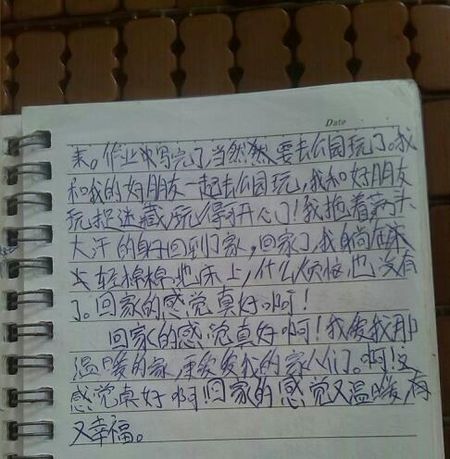 Date
来。作业以写完了当然然要去公园玩了。我
和我的好朋友一起去公园玩,我和好朋友
玩捉迷藏,玩得开心了!我抱着满头
大汗的身回到了家,回家了,我躺在床
轻棉棉地床上,什么烦恼也没有
了。回家的感觉真好啊!
回家的感觉真好啊!我爱我那
温暖的家,更爱我的家人们。啊!这
感觉真好啊回家的感觉又温暖,有
又幸福。